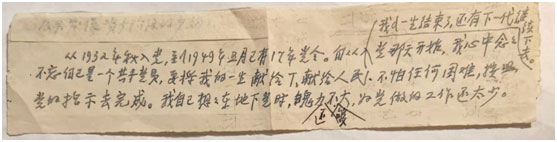 我一生结束了,还有下一代继续下去。
从1932年秋入党,至1949年五月已有17年党令。自从入党那天开始,我心中念念
不忘自己是一个共产党员,要将我的一生献给了,献给人民,不怕任何困难,按照
党的指示去完成。我自己想想在地下党时,魄力还不够大,为党做的工作还太少。